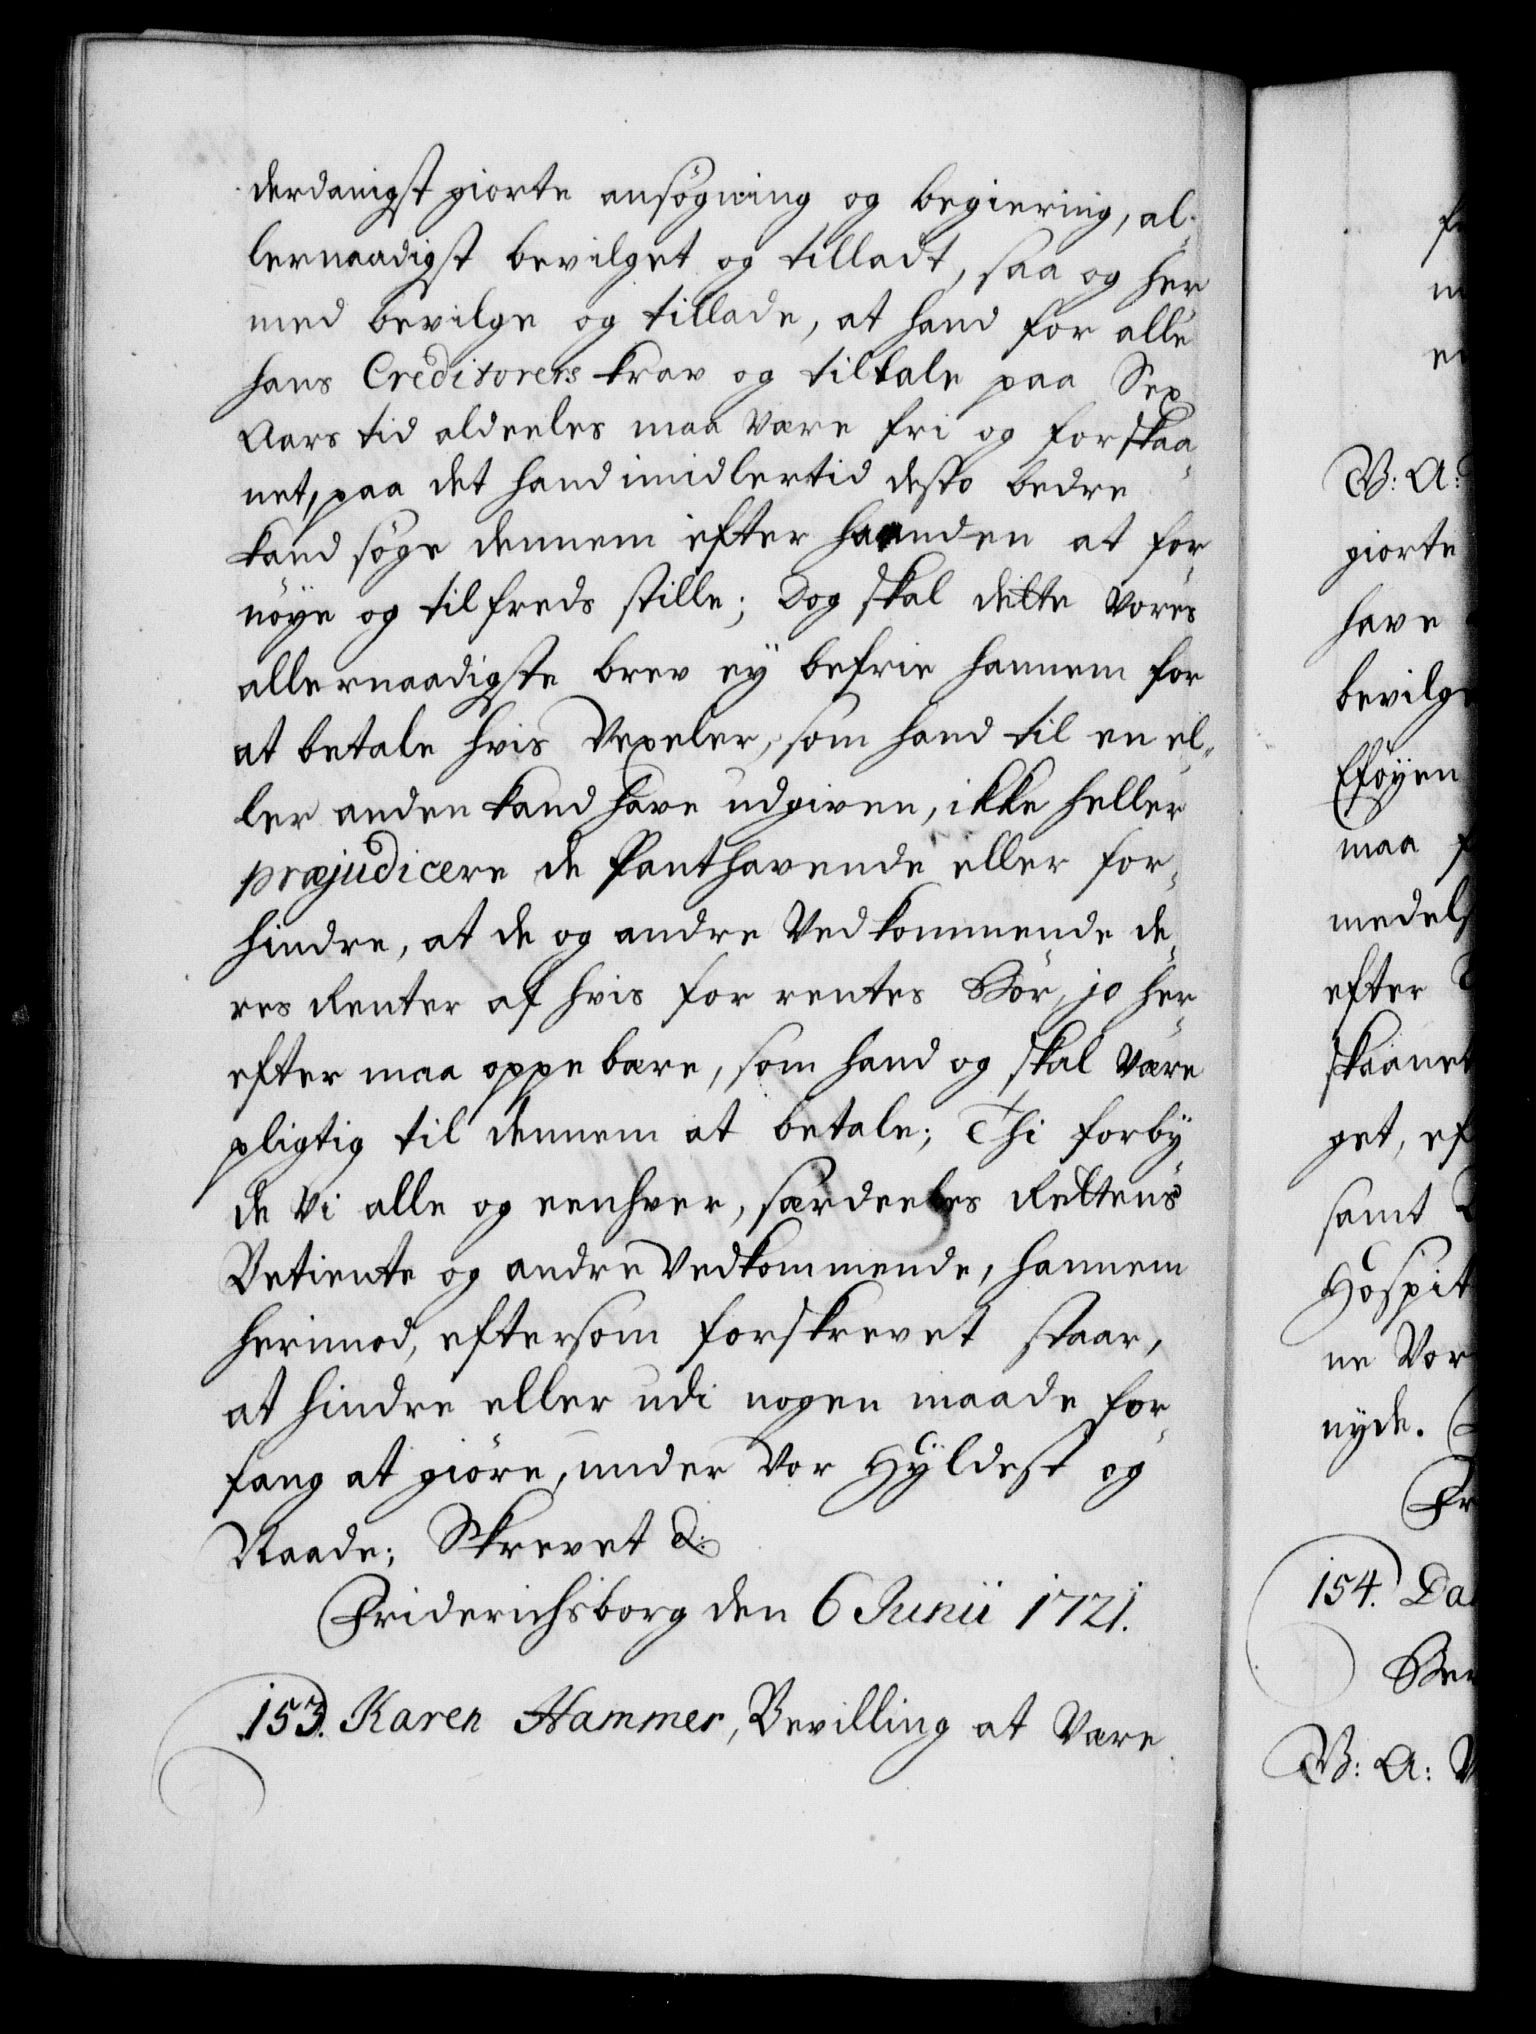 derdanigst giorte ansøgning og begiering, al-
lernaadigst bevilget og tilladt, saa og her
med bevilge og tillade, at hand for alle
hans Creditorers krav og tiltale paa Sex
Aars tid aldeeles maa være fri og forskaa-
net, paa det hand imidlertid desto bedre
kand søge dennem efter haanden at for-
nøye og tilfreds stille; Dog skal dette vores
allernaadigste brev ey befrie hannem for
at betale hvis Vexeler, som hand til en el-
ler anden kand have udgiven, ikke heller
præjudicere de Panthavende eller for-
hindre, at de og andre Vedkommende de-
res Renter af hvis for rentes Bør, jo her-
efter maa oppebære, som hand og skal være
pligtig til dennem at betale; Thi forby-
de Vi alle og eenhver, særdeeles Rettens
Betiente og andre Vedkommende, hannem
herimod, eftersom forskrevet staar,
at hindre eller udi nogen maade for-
fang at giøre, under Vor Hyldest og
Naade; Skrevet &:
Friderichsborg den 6 Junii 1721.
153. Karen Hammer, Bevilling at være
V: A:
giorte
have
bevilge
Eføyen
maa
medels
efter
skaanet
get, ef
samt
Hospit
ne Vor
nyde.
Fr
154. Da
Bev
V: A: V